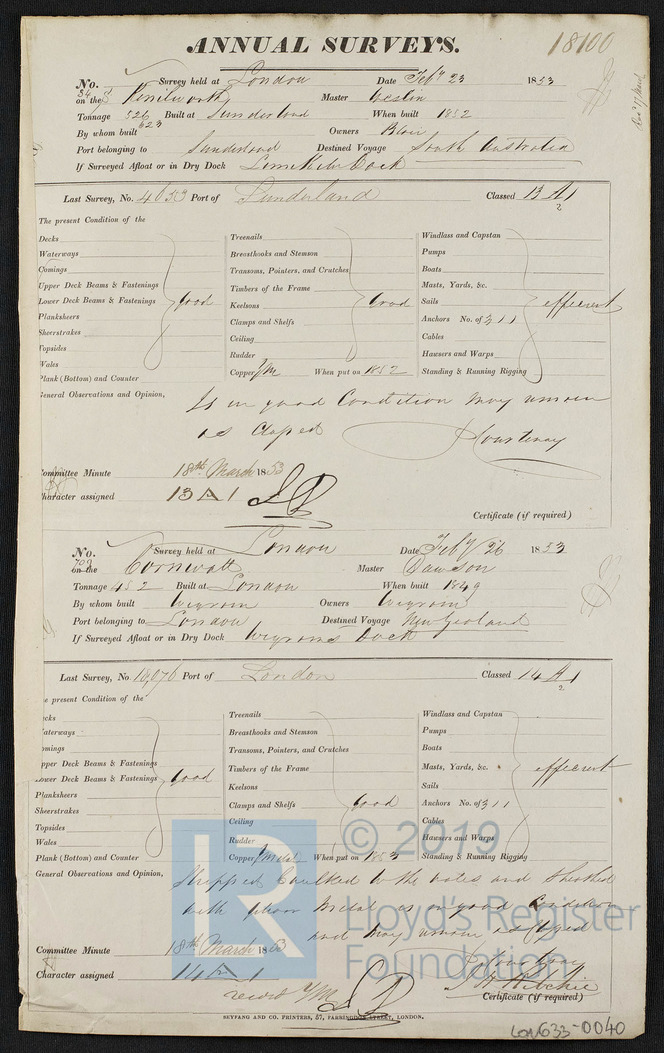 ANNUAL SURVEYS. 18100
No. 34 Survey held at London Date Feby 23 1853
on the S Kenilworth Master Weslin
Tonnage 526 Built at Sunderland When built 1852
523
By whom built Owners Blair
Port belonging to Sunderland Destined Voyage South Australia
If Surveyed Afloat or in Dry Dock Limekiln Dock
Last Survey, No. 4053 Port of Sunderland Classed 13 A 1
2
The present Condition of the
Decks Treenails Windlass and Capstan
Waterways Breasthooks and Stemson Pumps
Comings Transoms, Pointers, and Crutches Boats
Upper Deck Beams & Fastenings Timbers of the Frame Masts, Yards, &c.
Lower Deck Beams & Fastenings good Keelsons Good Sails efficient
Planksheers Clamps and Shelfs Anchors No. of 3 1 1
Sheerstrakes Ceiling Cables
Topsides Rudder Hawsers and Warps
Wales Copper Y/M When put on 1852 Standing & Running Rigging
Plank (Bottom) and Counter
General Observations and Opinion, Is in good Condition may remain
as Classed Courtenay
Committee Minute 18th March 1853
Character assigned 13 A 1
Certificate (if required)
No. 709 Survey held at London Date Feby 26 1853
on the Cornwall Master Dawson
Tonnage 452 Built at London When built 1849
By whom built Wigram Owners Wigram
Port belonging to London Destined Voyage New Zealand
If Surveyed Afloat or in Dry Dock Wigrams Dock
Last Survey, No. 18,076 Port of London Classed 14 A 1
2
e present Condition of the
ecks Treenails Windlass and Capstan
aterways Breasthooks and Stemson Pumps
omings Transoms, Pointers, and Crutches Boats
pper Deck Beams & Fastenings Timbers of the Frame Masts, Yards, &c. efficient
ower Deck Beams & Fastenings Good Keelsons Sails
Planksheers Clamps and Shelfs Good Anchors No. of 3 1 1
Sheerstrakes Ceiling Cables
Topsides Rudder Hawsers and Warps
Wales Copper Y/Metal When put on 1853 Standing & Running Rigging
Plank (Bottom) and Counter
General Observations and Opinion, Stripped Caulked to the wales and sheathed
with yellow Metal is in good Condition
and may remain as Classed
Committee Minute 18th March 1853 Courtenay
Character assigned 14 A 1 J H Ritchie
record Y/M Certificate (if required)
SEYFANG AND CO. PRINTERS, 57, FARRINGDON STREET, LONDON,
LON633-0040
LR
© 2019
Lloyd's Register
Foundation